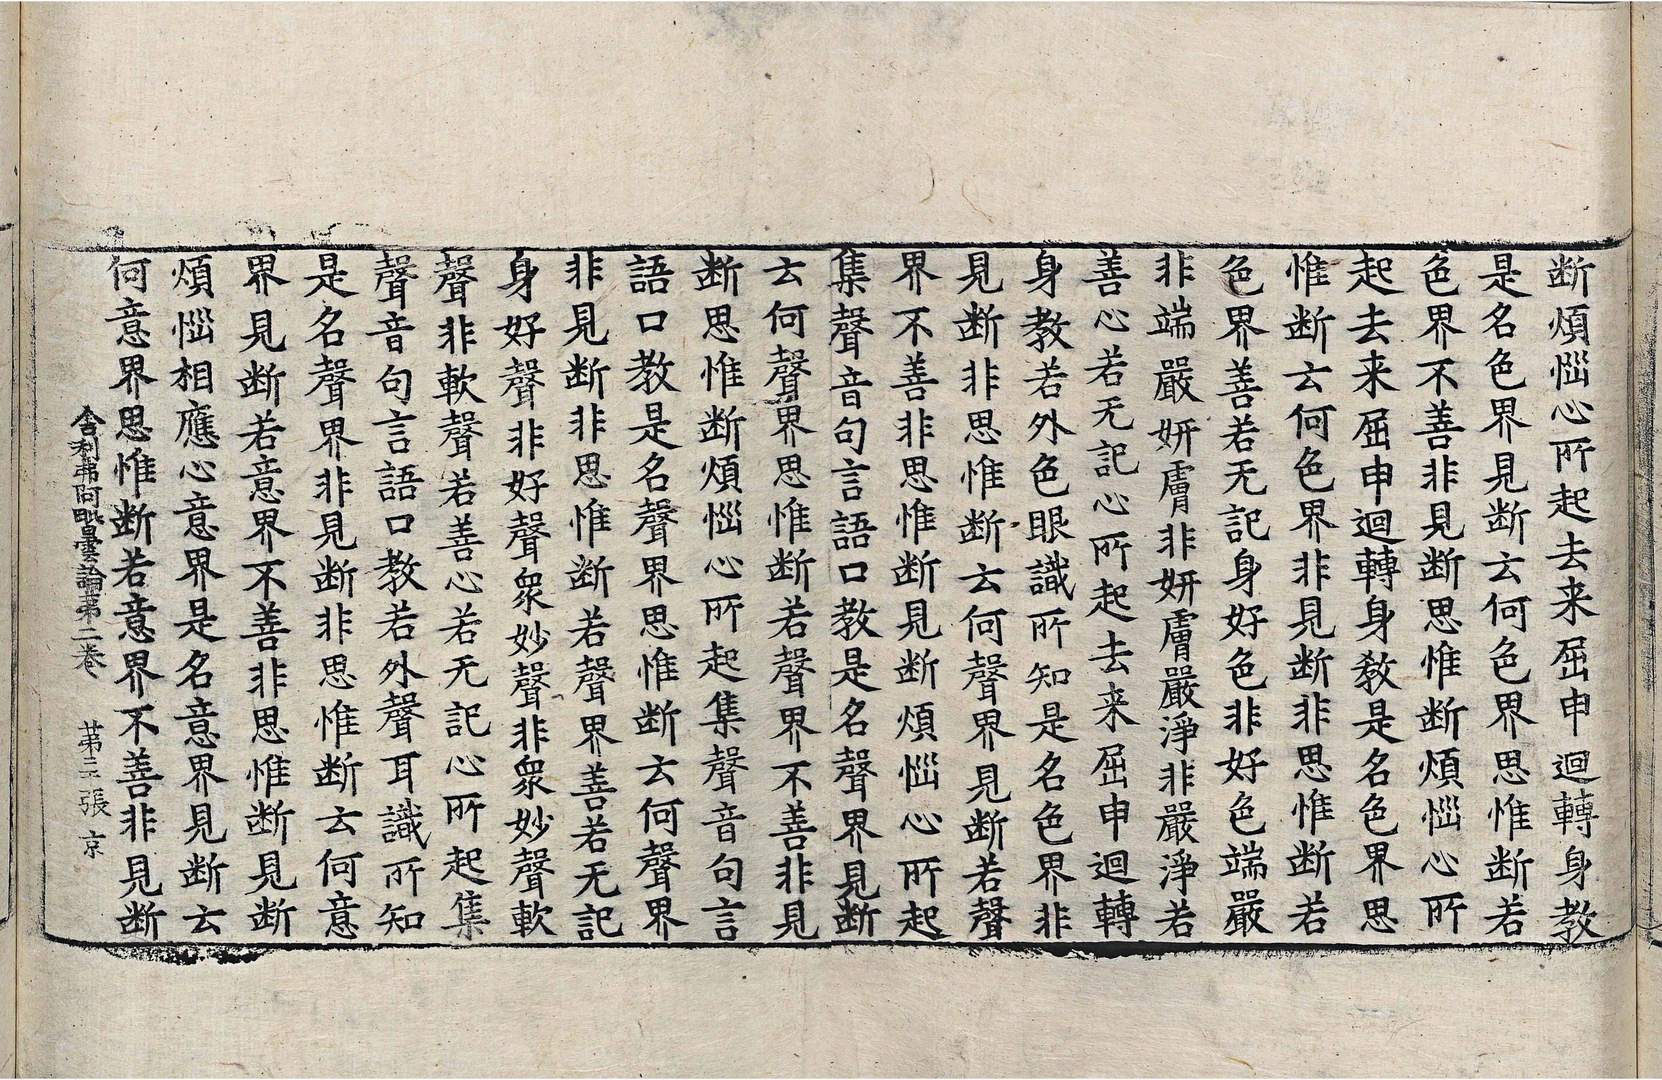 断煩惱心所起去来屈申迴轉身教
是名色界見断云何色界思惟断若
色界不善非見断思惟断煩惱心所
起去来屈申迴轉身教是名色界思
惟断云何色界非見断非思惟断若
色界善若无記身好色非好色端嚴
非端嚴妍膚非妍膚嚴淨非嚴淨若
善心若无記心所起去来屈申迴轉
身教若外色眼識所知是名色界非
見断非思惟断云何聲界見断若聲
界不善非思惟断見断煩惱心所起
集聲音句言語口教是名聲界見断
云何聲界思惟断若聲界不善非見
断思惟断煩惱心所起集聲音句言
語口教是名聲界思惟断云何聲界
非見断非思惟断若聲界善若无記
身好聲非好聲衆妙聲非衆妙聲軟
聲非軟聲若善心若无記心所起集
聲音句言語口教若外聲耳識所知
是名聲界非見断非思惟断云何意
界見断若意界不善非思惟断見断
煩惱相應心意界是名意界見断云
何意界思惟断若意界不善非見断
舍利弗阿毗曇論第二卷 第三張 京